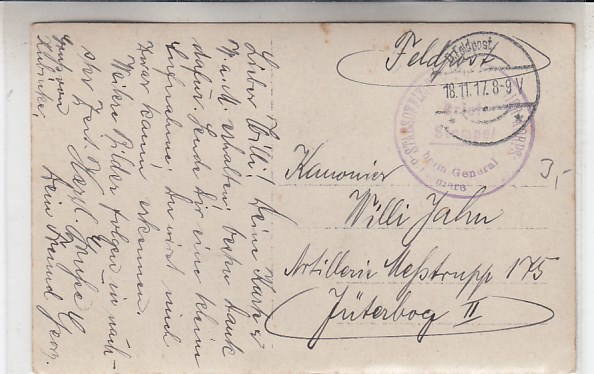 Feldpost
Feldpost
18.11.17. 8-9 V
Brief
Stempel
General
Kanonier
Willi Jahn
Artillerie Meßtrupp 175
Jüterbog II
3,-
Lieber Willi! Deine Karte
erhalten. besten Dank
dafür. Sende Dir eine kleine
Aufnahme. Du wirst mich
zwar kaum erkennen.
Weitere Bilder folgen in näch-
ster Zeit. Herzl. Grüße
Dein Freund Georg.
Gruß von